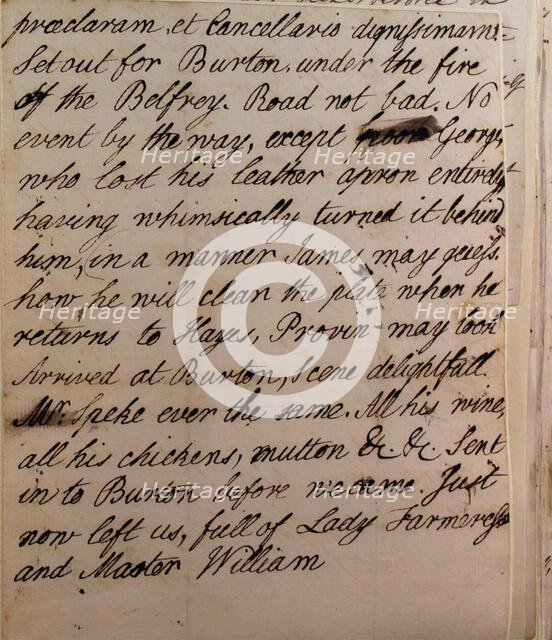 præclaram, et Cancellaris dignissimam.
Set out for Burton, under the fire
of the Belfrey. Road not bad. No
event by the way, except poor George,
who lost his leather apron entirely
having whimsically turned it behind
him, in a manner James may guess.
how he will clean the plate when he
returns to Hayes, Provin may look
Arrived at Burton, Scene delightfull.
Mr. Speke ever the same. All his wine,
all his chickens, mutton &c. &c. Sent
in to Burton before we came. Just
now left us, full of Lady Farmeress
and Master William
Heritage
Heritage
Heritage
Heritage
Heritage
Heritage
Heritage
Heritage
©